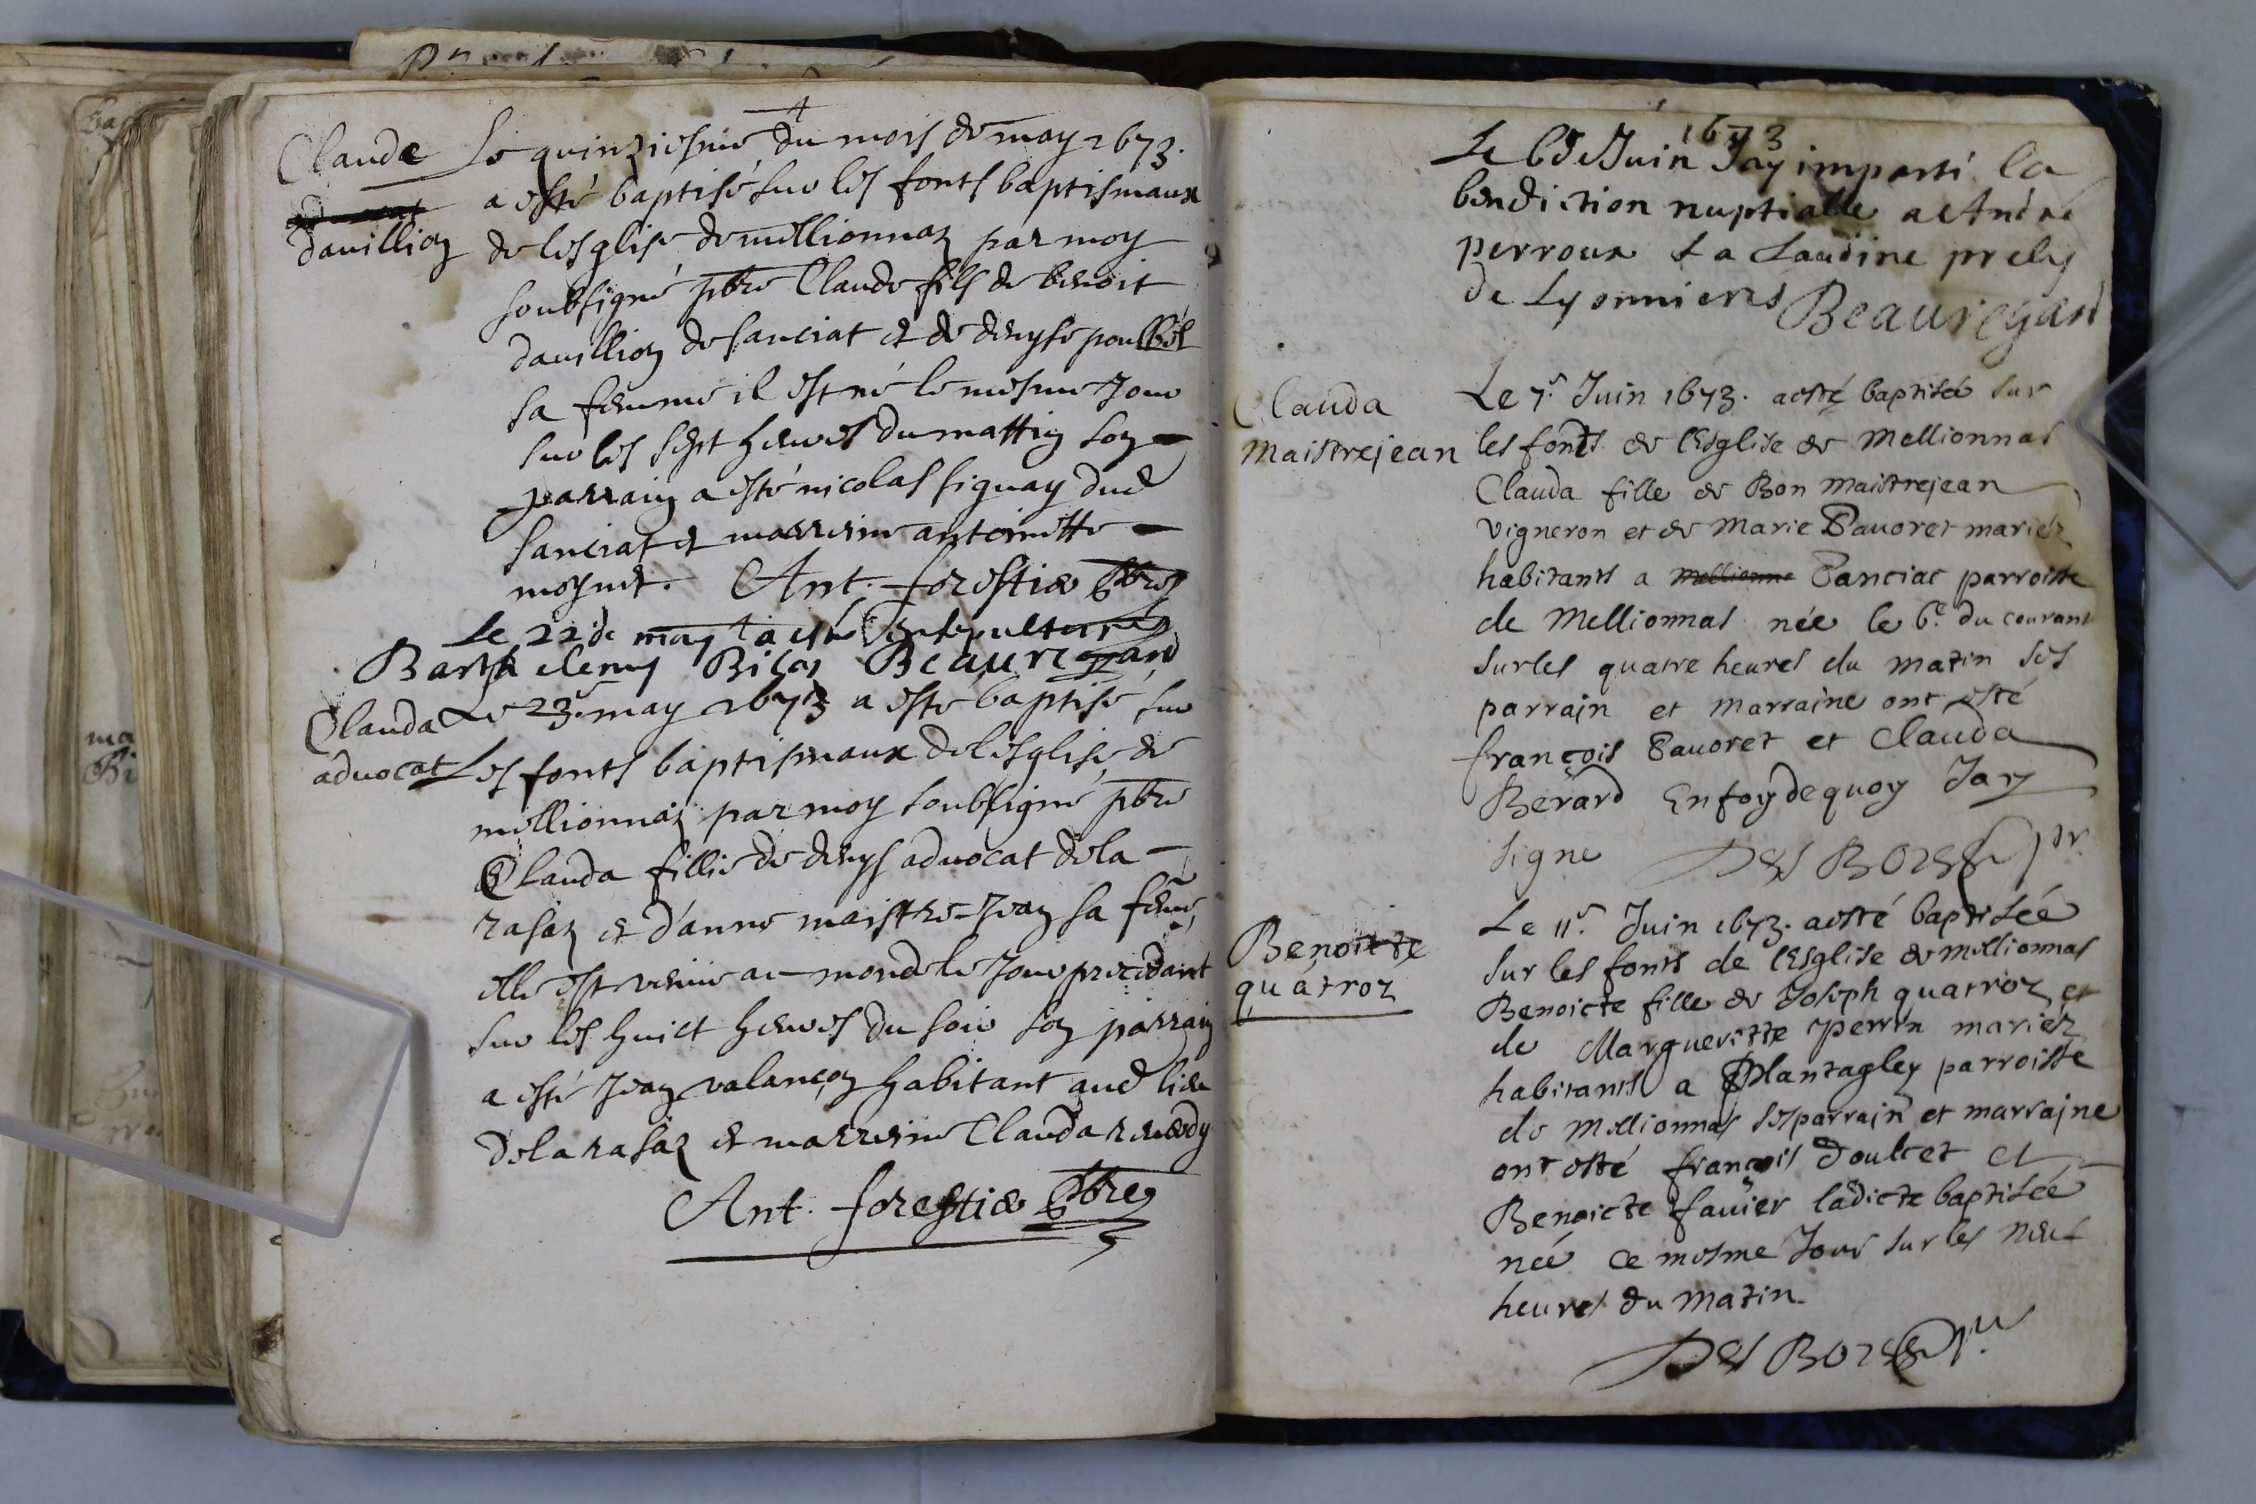 Claude
advocat
davillion
Le quinziesme du mois de may 1673.
a esté baptisé sur les fonts baptismaux
de lesglise de mellionnaz par moy
soubsigné pbre Claude fils de benoit
davillion de sanciat et de denyse
sa femme il est né le mesme Jour
sur les sept heures du mattin son
parrain a esté nicolas siguay dud
sanciat et marreine antoinette
moynet. Ant. forestier pbre
Le 22 de may a esté Ensepulturé
Barthelemy Beauregard
Clauda
advocat
Le 23e may 1673 a esté baptisé sur
Les fonts baptismaux de lesglise de
mellionnaz par moy soubsigné pbre
Clauda fillie de denys advocat de la
rasaz et d'anne maistre-Jean sa feme,
elle est venue au monde le Jour precedant
sur les huict heures du soir son parrain
a esté Jean valançon habitant aud lieu
de la rasaz et marreine Clauda
Ant. forestier pbre
1673
Le 6 de Juin Jay imparti la
benediction nuptialle a André
perroux & a Laudine prely
de Lyonnieres Beauregard
Clauda
Maistrejean
Le 7e. Juin 1673. a esté baptisée sur
les fonts de l'Esglise de Mellionnas
Clauda fille de Bon Maistrejean
Vigneron et de Marie Pavoret mariéz
habitants a mellionna Sanciac parroisse
de Mellionnas née le 6e. du courant
sur les quatre heures du matin ses
parrain et marraine ont esté
françois Pavoret et Clauda
Berard En foy de quoy Jay
signe
Benoitte
quatroz
Le 11e. Juin 1673. a esté baptisée
sur les fonts de l'Esglise de mellionnas
Benoicte fille de Joseph quatroz et
de Margueritte perrin mariéz
habitants a Plantagley parroisse
de Mellionnas ses parrain et marraine
ont esté françois Doulcet et
Benoicte favier ladicte baptisée
née ce mesme Jour sur les neuf
heures du matin